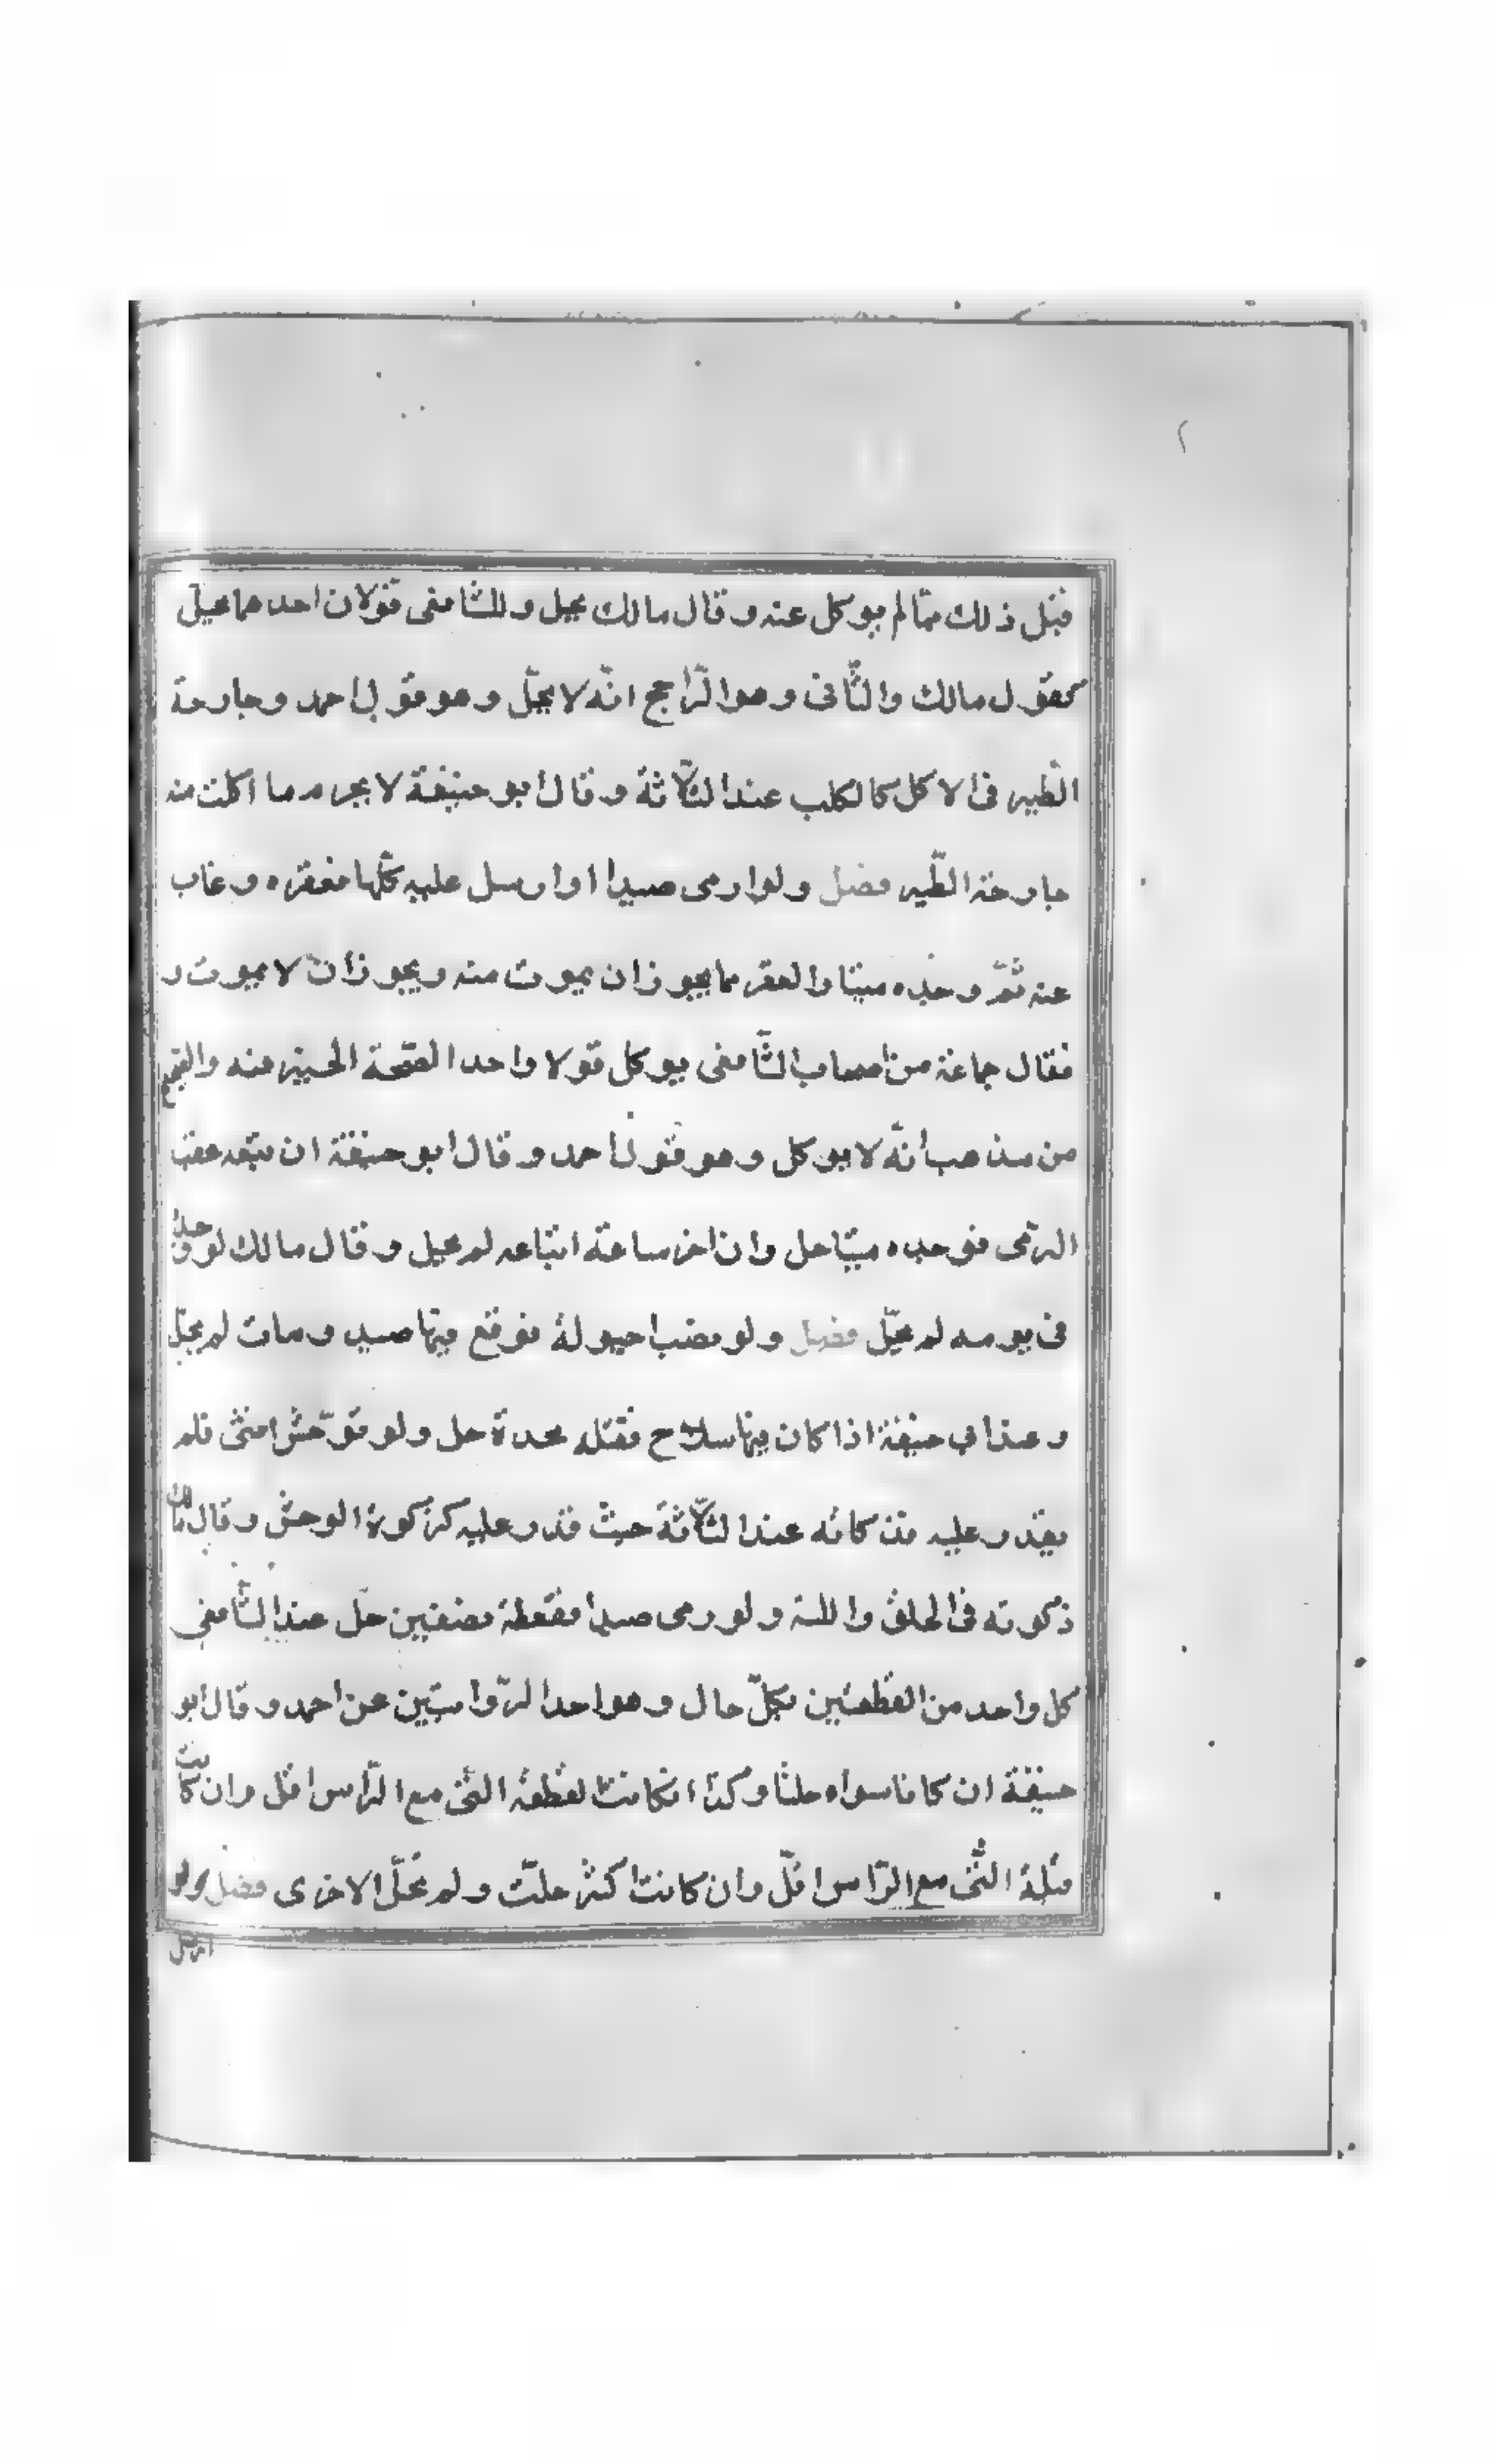 قبل ذلك ممّا لم يوكل عنه وقال مالك يحل وللشافعى قولان احدهما يحلّ
كقول مالك والثّانى وهو الرّاجح انّه لا يحلّ وهو قول احمد وجارحة
الطّير فى الاكل كالكلب عند الثّلاثة وقال أبو حنيفة لا يحرم ما اكلت منه
جارحة الطّير فصل ولو ارمى صيدا او ارسل عليه كلبا فعقره وغاب
عنه ثمّ وجده ميتا والعقر مما يجوز ان يموت منه ويجوز أن لا يموت و
فقال جماعة من أصحاب الشّافعى يوكل قولا واحدا لصّحة الخبر فيه والصحيح
من مذهب أنّه لا يوكل وهو قول أحمد وقال أبو حنيفة ان تبعه عقيب
الرّمى فوجده ميّتا حل وان اخر ساعة اتباعه لم يحل وقال مالك لو وجده
فى يومه لم يحلّ فصل ولو نصب احبولة فوقع فيها صيد ومات لم يحلّ
وعند ابي حنيفة اذا كان فيها سلاح فقتله بحدة حل ولو توّحش انسّى فلم
يقدر عليه فذكاته عند الثّلاثة حيث قدر عليه كذكوة الوحش وقال مالك
ذكوته فى الحلق واللبة ولو رمى صيدا فقطعه نصفين حلّ عند الشّافعي
كل واحد من القطعتين بكلّ حال وهو احد الرّوايتين عن احمد وقال ابو
حنيفة ان كانا سواء حلتا وكذا ان كانت القطعة التى مع الرّاس اقل وان كانت
قبلة التّى مع الرّاس اقلّ وان كانت اكثر حلتّ ولم تحلّ الاخرى فصل ولو
ارسل